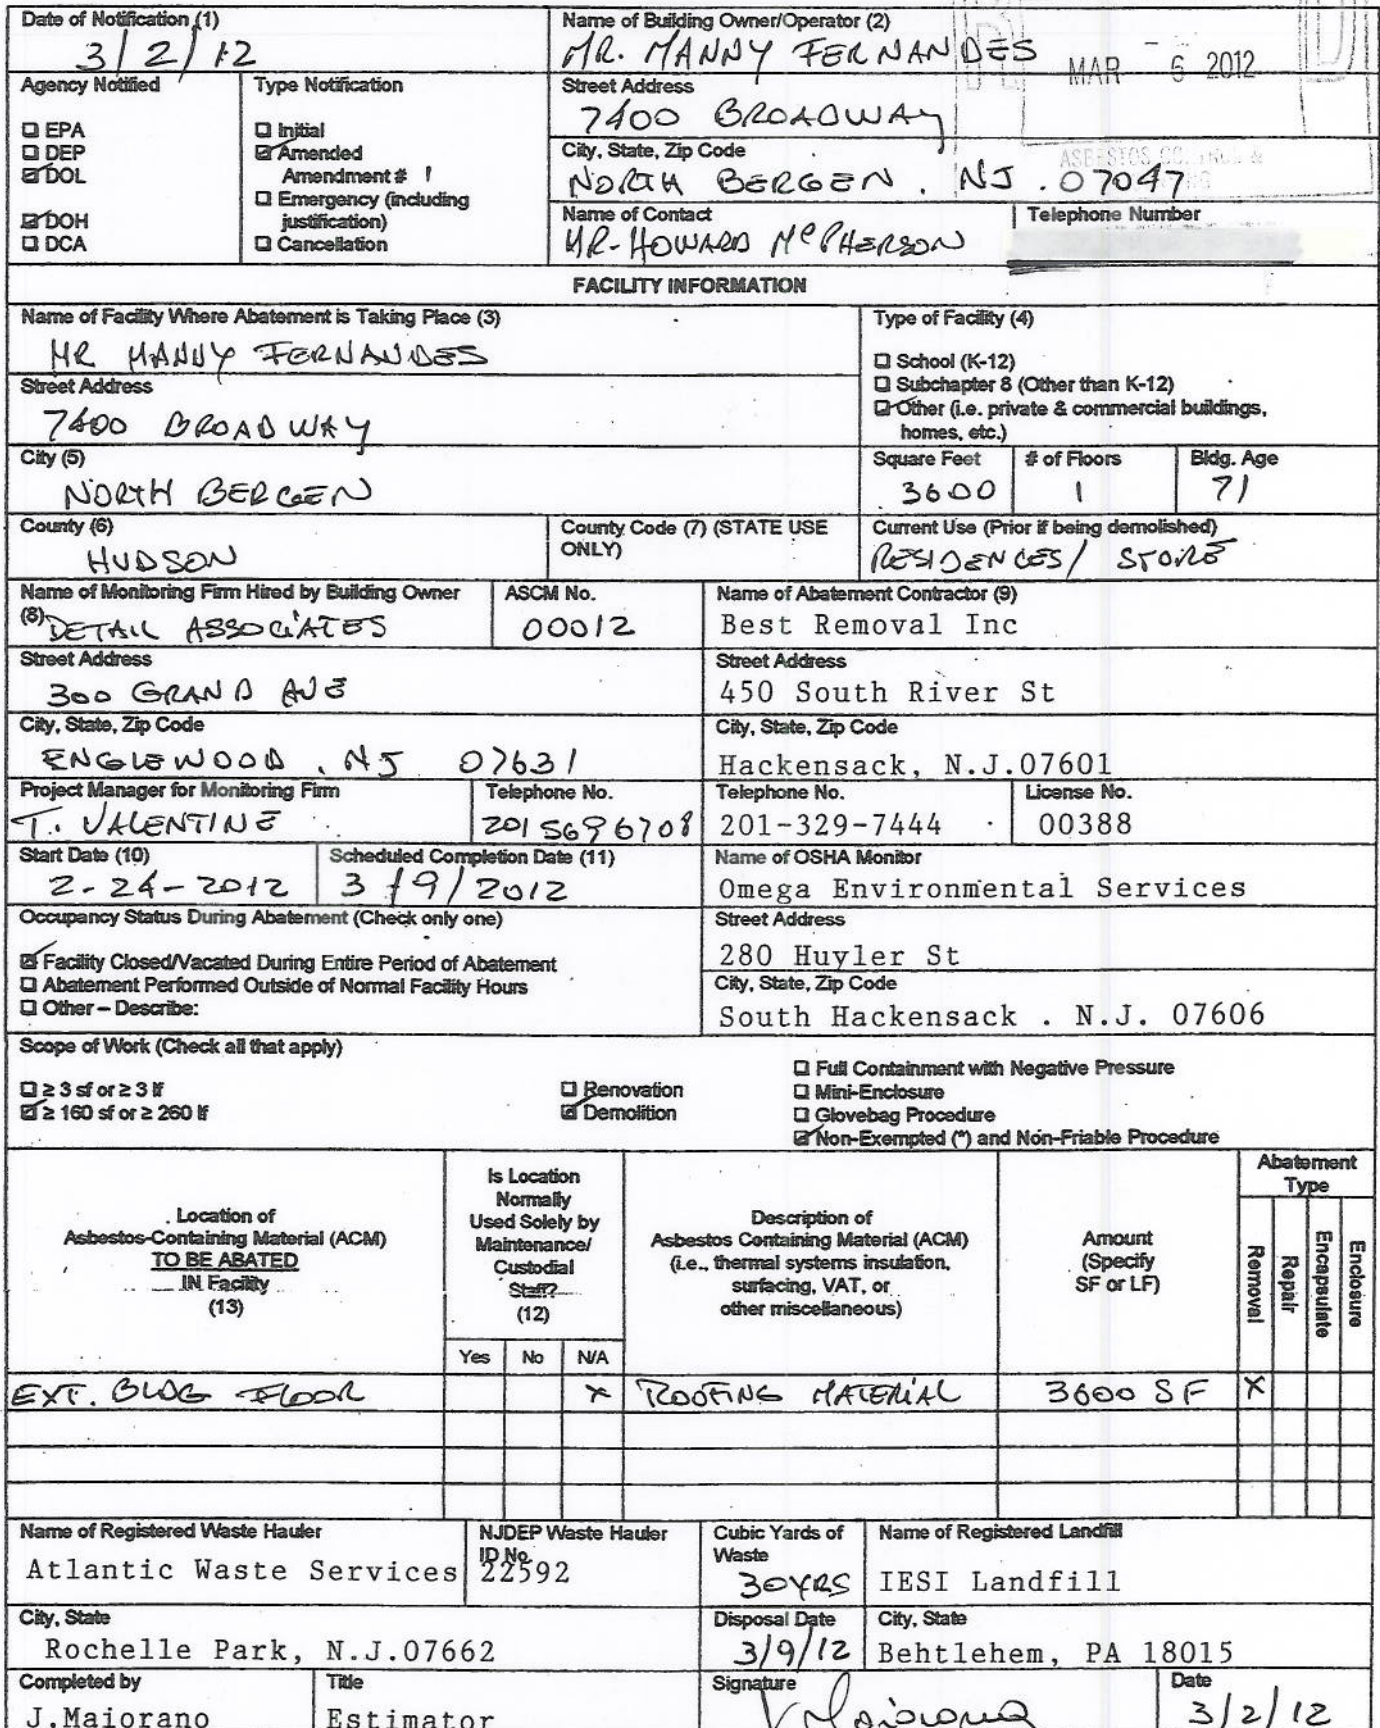 Date of Notification (1)
3/2/12
Name of Building Owner/Operator (2)
MR. MANNY FERNANDES
MAR 6 2012
Agency Notified
☐ EPA
☐ DEP
☑ DOL
☑ DOH
☐ DCA
Type Notification
☐ Initial
☑ Amended
Amendment # 1
☐ Emergency (including
justification)
☐ Cancellation
Street Address
7400 BROADWAY
City, State, Zip Code
NORTH BERGEN, NJ. 07047
ASBESTOS CONTROL &
Name of Contact
MR. HOWARD McPHERSON
Telephone Number
FACILITY INFORMATION
Name of Facility Where Abatement is Taking Place (3)
MR MANNY FERNANDES
Street Address
7400 BROADWAY
City (5)
NORTH BERGEN
Type of Facility (4)
☐ School (K-12)
☐ Subchapter 8 (Other than K-12)
☑ Other (i.e. private & commercial buildings,
homes, etc.)
Square Feet
3600
# of Floors
1
Bldg. Age
71
County (6)
HUDSON
County Code (7) (STATE USE
ONLY)
Current Use (Prior if being demolished)
RESIDENCES/ STORE
Name of Monitoring Firm Hired by Building Owner
(8) DETAIL ASSOCIATES
ASCM No.
00012
Name of Abatement Contractor (9)
Best Removal Inc
Street Address
300 GRAND AVE
Street Address
450 South River St
City, State, Zip Code
ENGLEWOOD, NJ 07631
City, State, Zip Code
Hackensack, N.J.07601
Project Manager for Monitoring Firm
T. VALENTINE
Telephone No.
2015696708
Telephone No.
201-329-7444
License No.
00388
Start Date (10)
2-24-2012
Scheduled Completion Date (11)
3/9/2012
Name of OSHA Monitor
Omega Environmental Services
Occupancy Status During Abatement (Check only one)
☑ Facility Closed/Vacated During Entire Period of Abatement
☐ Abatement Performed Outside of Normal Facility Hours
☐ Other – Describe:
Street Address
280 Huyler St
City, State, Zip Code
South Hackensack . N.J. 07606
Scope of Work (Check all that apply)
☐ ≥ 3 sf or ≥ 3 lf
☑ ≥ 160 sf or ≥ 260 lf
☐ Renovation
☑ Demolition
☐ Full Containment with Negative Pressure
☐ Mini-Enclosure
☐ Glovebag Procedure
☑ Non-Exempted (*) and Non-Friable Procedure
Location of
Asbestos-Containing Material (ACM)
TO BE ABATED
IN Facility
(13)
Is Location
Normally
Used Solely by
Maintenance/
Custodial
Staff?
(12)
Yes No N/A
Description of
Asbestos Containing Material (ACM)
(i.e., thermal systems insulation,
surfacing, VAT, or
other miscellaneous)
Amount
(Specify
SF or LF)
Abatement
Type
Removal
Repair
Encapsulate
Enclosure
EXT. BLDG FLOOR X ROOFING MATERIAL 3600 SF X
Name of Registered Waste Hauler
Atlantic Waste Services
NJDEP Waste Hauler
ID No.
22592
Cubic Yards of
Waste
30YRS
Name of Registered Landfill
IESI Landfill
City, State
Rochelle Park, N.J.07662
Disposal Date
3/9/12
City, State
Behtlehem, PA 18015
Completed by
J.Maiorano
Title
Estimator
Signature
Date
3/2/12